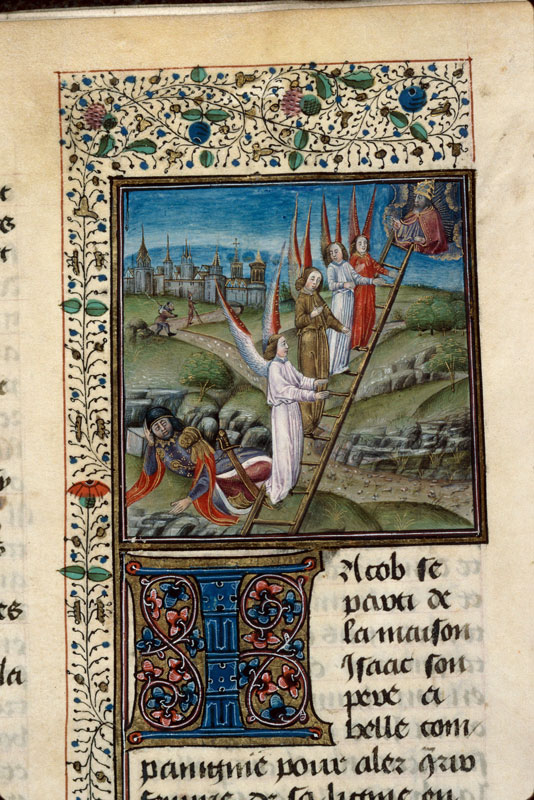 Iacob se
parti de
la maison
Isaac son
pere a
belle com-
paingnie pour aler q̃rir
femme de sa lignie en